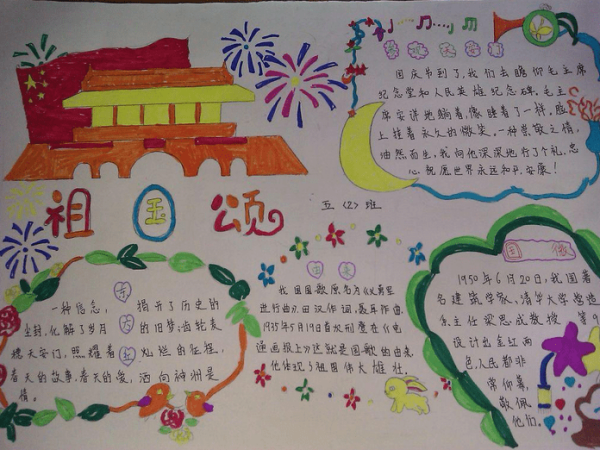 国庆节到了,我们去瞻仰毛主席
纪念堂和人民英雄纪念碑,毛主
席安详地躺着,像睡着了一样,脸
上挂着永久的微笑,一种崇敬之情,
油然而生,我向他深深地行了3个礼,忠
心祝愿世界永远和平,安康!
祖国颂
五〈2〉班
一种信念, 揭开了历史的
尘封,化解了岁月 的旧梦,齿轮表
穗天安门,照耀着 灿烂的征程,
春天的故事,春天的爱,洒向神州是
情。
国歌
我国国歌原名为《义勇军
进行曲》,田汉作词,聂耳作曲,
1935年5月19日首次刊登在《电
通画报上》,这就是国歌的由来,
他体现了祖国伟大雄壮.
国徽
1950年6月20日,我国著
名建筑学家,清华大学营造
系主任梁思成教授 等9
设计出金红两
色,人民都非
常仰慕,
敬佩
他们.